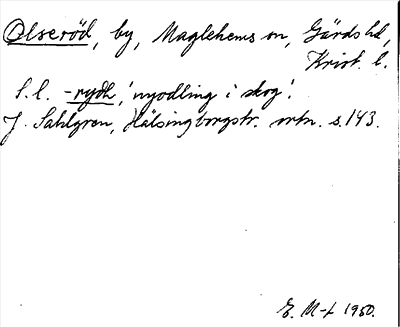 Olseröd, by, Maglehems sn, Gärds hd,
Krist. l.
S.l. -rydh, 'nyodling i skog'.
J. Sahlgren, Hälsingborgstr. ortn. s. 143.
E. M-t 1950.